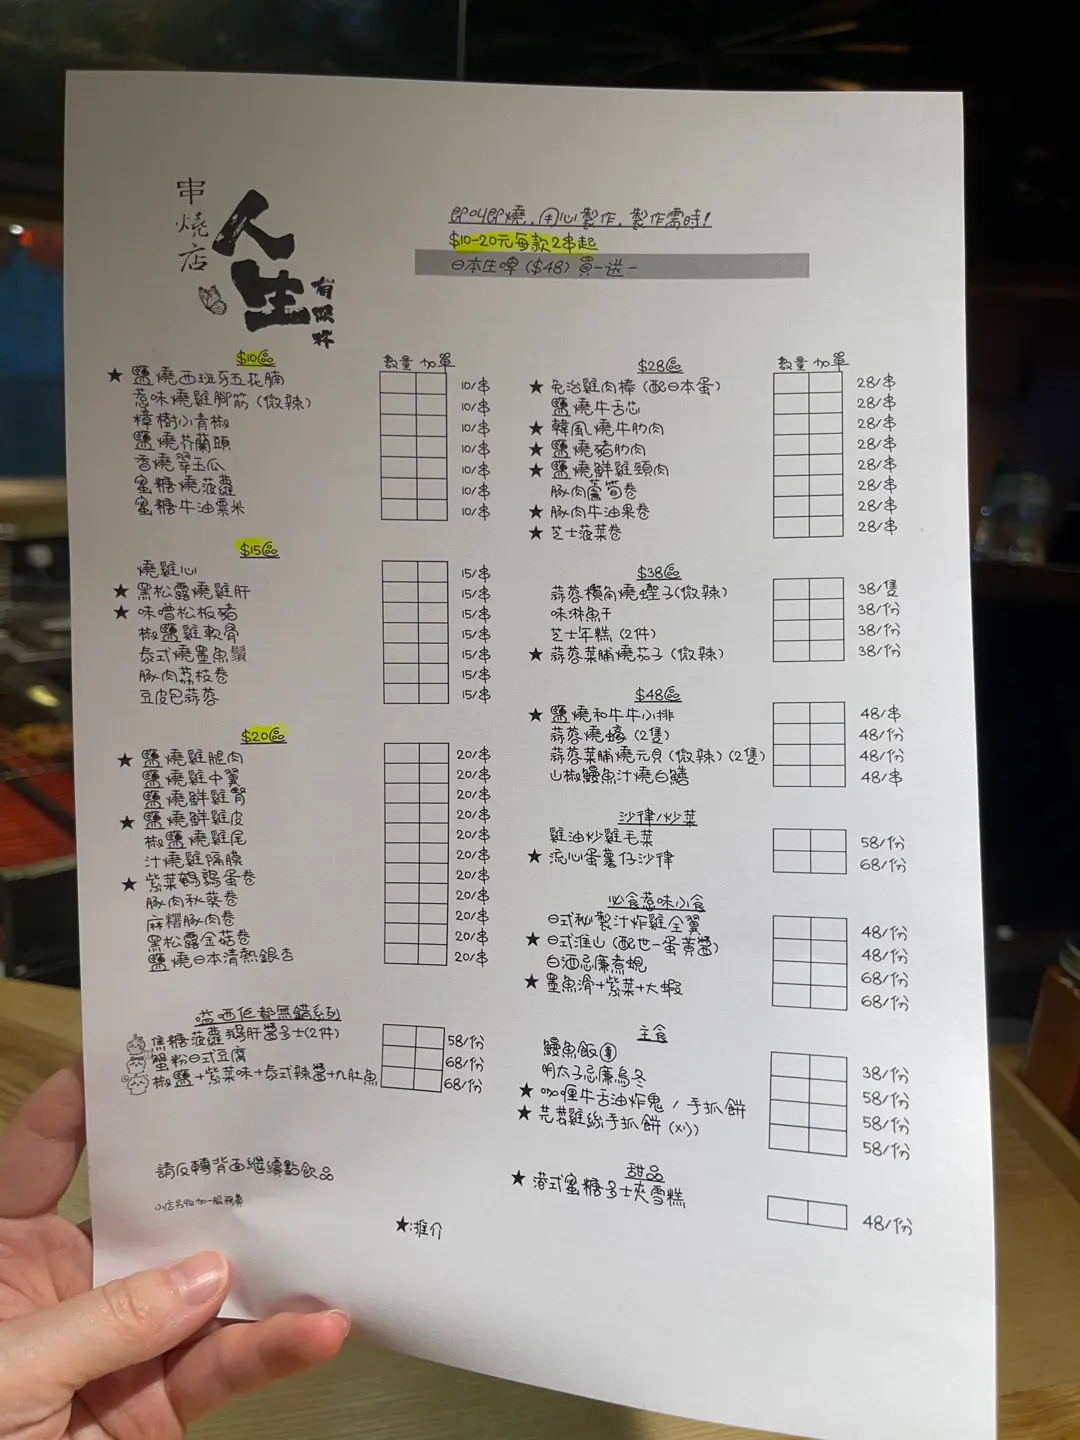 串燒店
人生
有限杯
即叫即燒，用心製作，製作需時！
$10-20元每款2串起
日本生啤（$48）買一送一
$10區 數量 加單
★ 鹽燒西班牙五花腩 10/串
惹味燒雞腳筋（微辣） 10/串
樟樹小青椒 10/串
鹽燒芥蘭頭 10/串
香燒翠玉瓜 10/串
蜜糖燒菠蘿 10/串
蜜糖牛油粟米 10/串
$15區
燒雞心 15/串
★ 黑松露燒雞肝 15/串
★ 味噌松板豬 15/串
椒鹽雞軟骨 15/串
泰式燒墨魚鬚 15/串
豚肉荔枝卷 15/串
豆皮包蒜蓉 15/串
$20區
★ 鹽燒雞腿肉 20/串
鹽燒雞中翼 20/串
鹽燒鮮雞腎 20/串
★ 鹽燒鮮雞皮 20/串
椒鹽燒雞尾 20/串
汁燒雞隔膜 20/串
★ 紫菜鵪鶉蛋卷 20/串
豚肉秋葵卷 20/串
麻糬豚肉卷 20/串
黑松露金菇卷 20/串
鹽燒日本清熱銀杏 20/串
嗌晒佢都無錯系列
焦糖菠蘿鵝肝醬多士(2件) 58/份
蟹粉日式豆腐 68/份
椒鹽+紫菜味+泰式辣醬+九肚魚 68/份
請反轉背面繼續點飲品
小店另收加一服務費
★:推介
$28區 數量 加單
★ 免治雞肉棒（配日本蛋） 28/串
鹽燒牛舌芯 28/串
★ 韓風燒牛肋肉 28/串
★ 鹽燒豬肋肉 28/串
★ 鹽燒鮮雞頸肉 28/串
豚肉蘆筍卷 28/串
★ 豚肉牛油果卷 28/串
★ 芝士菠菜卷 28/串
$38區
蒜蓉欖角燒蟶子(微辣) 38/隻
味淋魚干 38/份
芝士年糕（2件） 38/份
★ 蒜蓉菜脯燒茄子（微辣） 38/份
$48區
★ 鹽燒和牛牛小排 48/串
蒜蓉燒蠔（2隻） 48/份
蒜蓉菜脯燒元貝（微辣）（2隻） 48/份
山椒鰻魚汁燒白鱔 48/串
沙律/炒菜
雞油炒雞毛菜 58/份
★ 流心蛋薯仔沙律 68/份
必食惹味小食
日式秘製汁炸雞全翼 48/份
★ 日式淮山（配世一蛋黃醬） 48/份
白酒忌廉煮蜆 68/份
★ 墨魚滑+紫菜+大蝦 68/份
主食
鰻魚飯 38/份
明太子忌廉烏冬 58/份
★ 咖喱牛舌油炸鬼 / 手抓餅 58/份
★ 芫荽雞絲手抓餅 58/份
甜品
★ 港式蜜糖多士夾雪糕 48/份